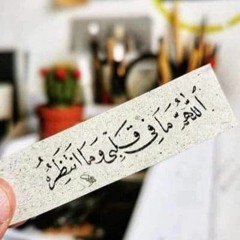 اَللّٰهُمَّ مَا فِي قَلْبِي وَمَا أَنْتَظِرُهُ